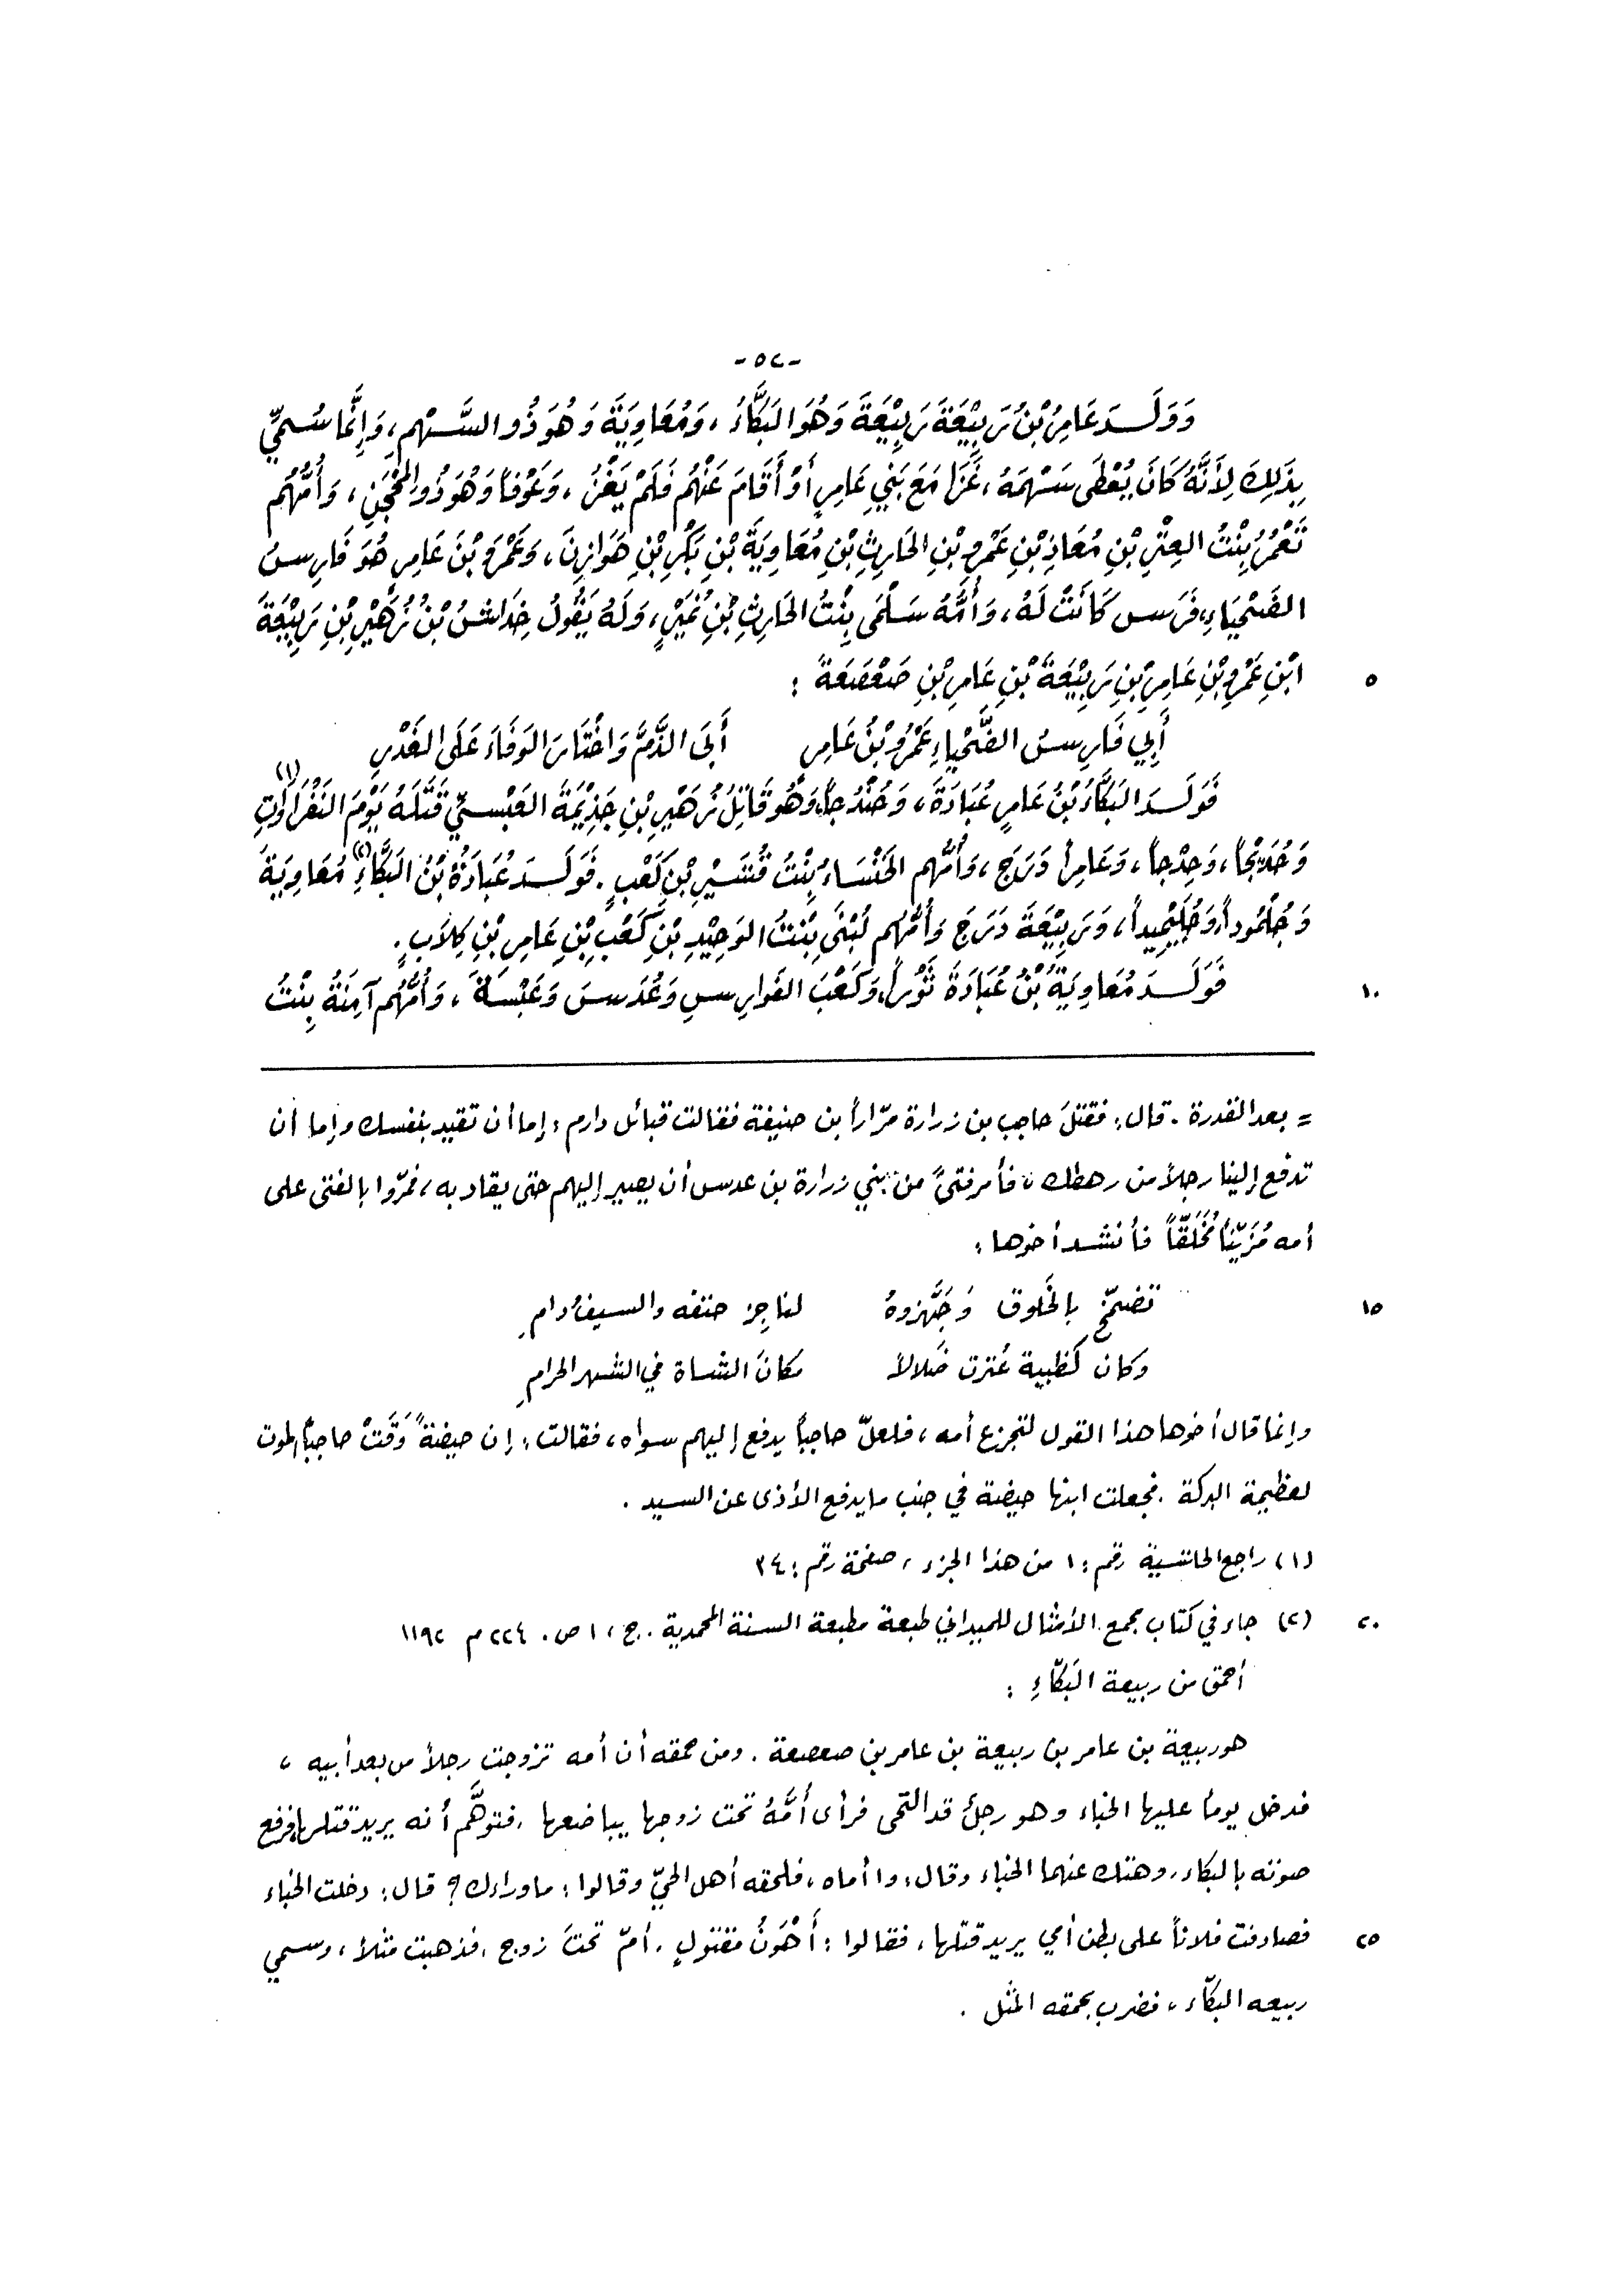 -٥٢-
وَوَلَــدَ عَامِرُ بْنُ رَبِيْعَةَ رَبِيْعَةَ وَهُوَ البَكَّاءُ، وَمُعَاوِيَةَ وَهُوَ ذُو السَّــهْمِ، وَإِنَّمَا سُــمِّيَ
بِذَلِكَ لِأَنَّهُ كَانَ يُعْطَى سَــهْمَهُ، غَزَا مَعَ بَنِي عَامِرٍ أَوْ أَقَامَ عَنْهُم فَلَمْ يَغْزُ، وَعَوْفاً وَهُوَ ذُو المِحْجَنِ، وَأُمُّهُم
تَعْمُرُ بِنْتُ العِتْرِ بْنِ مُعَاذِ بْنِ عَمْرِو بْنِ الحَارِثِ بْنِ مُعَاوِيَةَ بْنِ بَكْرِ بْنِ هَوَازِنَ، وَعَمْرَو بْنَ عَامِرٍ هُوَ فَارِسُ
الضَّحْيَاءِ، فَرَس كَانَتْ لَهُ، وَأُمُّهُ سَلْمَى بِنْتُ الحَارِثِ بْنِ نُمَيْرٍ، وَلَهُ يَقُولُ خِدَاشُ بْنُ زُهَيْرِ بْنِ رَبِيْعَةَ
٥ ابْنِ عَمْرِو بْنِ عَامِرِ بْنِ رَبِيْعَةَ بْنِ عَامِرِ بْنِ صَعْصَعَةَ :
أَبِي فَارِسُ الضَّحْيَاءِ عَمْرُو بْنُ عَامِرٍ أَبَى الذَّمَّ وَاخْتَارَ الوَفَاءَ عَلَى الغَدْرِ
فَوَلَــدَ البَكَّاءُ بْنُ عَامِرٍ عُبَادَةَ، وَحُنْدُجاً، وَهُوَ قَاتِلُ زُهَيْرِ بْنِ جَذِيْمَةَ العَبْسِيِّ قَتَلَهُ يَوْمَ النَفْرَاوَاتِ (١)
وَخُدَيْجاً، وَحِدْجاً، وَعَامِراً دَرَجَ، وَأُمُّهُم الخَنْسَاءُ بِنْتُ قُشَيْرِ بْنِ كَعْبٍ. فَوَلَــدَ عُبَادَةُ بْنُ البَكَّاءِ (٢) مُعَاوِيَةَ
وَجُلْمُوداً، وَجُلَيْمِيداً، وَرَبِيْعَةَ دَرَجَ وَأُمُّهُم لُبْنَى بِنْتُ الوَحِيْدِ بْنِ كَعْبِ بْنِ عَامِرِ بْنِ كِلَابٍ.
١٠ فَوَلَــدَ مُعَاوِيَةُ بْنُ عُبَادَةَ ثَوْراً، وَكَعْبَ الفَوَارِسِ وَعُدَسَ وَعَبْسَةَ، وَأُمُّهُم آمِنَةُ بِنْتُ
= بعد القدرة. قال: فقتلَ حاجب بن زرارة مرّاراً بن حنيفة فقالت قبائل دارم: إما أن تقيد بنفسك وإما أن
تدفع إلينا رجلاً من رهطك، فأمر فتىً من بني زرارة بن عدس أن يصير إليهم حتى يقاد به، فمرّوا بالفتى على
أمه مُزَيَّناً مُخَلَّقاً فأنشد أخوها:
١٥ تضمّخ بالخَلوق وَجَهَّزوهُ لناجِز حتفه والسيفُ دامِ
وكان كظبية عُترت ضَلالاً مكانَ الشاة في الشهر الحرامِ
وإنما قال أخوها هذا القول لتجزع أمه، فلعلّ حاجباً يدفع إليهم سواه، فقالت: إن حيضةً وَقَتْ حاجباً الموت
لعظيمة البركة. فجعلت ابنها حيضة في جنب ما يدفع الأذى عن السيد.
(١) راجع الحاشية رقم: ١ من هذا الجزء، صفحة رقم: ٣٤
٢٠ (٢) جاء في كتاب مجمع الأمثال للميداني طبعة مطبعة السنة المحمدية. ج، ١ ص. ٢٢٤ م ١١٩٢
أحمق من ربيعة البَكّاءِ :
هو ربيعة بن عامر بن ربيعة بن عامر بن صعصعة. ومن حمقه أن أمه تزوجت رجلاً من بعد أبيه،
فدخل يوماً عليها الخباء وهو رجلٌ قد التحى فرأى أُمَّهُ تحت زوجها يباضعها، فتوهَّم أنه يريد قتلها، فرفع
صوته بالبكاء، وهتك عنهما الخباء وقال: وا أماه، فلحقه أهل الحيّ وقالوا: ما وراءك؟ قال: دخلت الخباء
٢٥ فصادفت فلاناً على بطن أمي يريد قتلها، فقالوا: أَهْوَنُ مقتولٍ. أمّ تحتَ زوج، فذهبت مثلاً، وسمي
ربيعه البكّاء، فضرب بحمقه المثل.